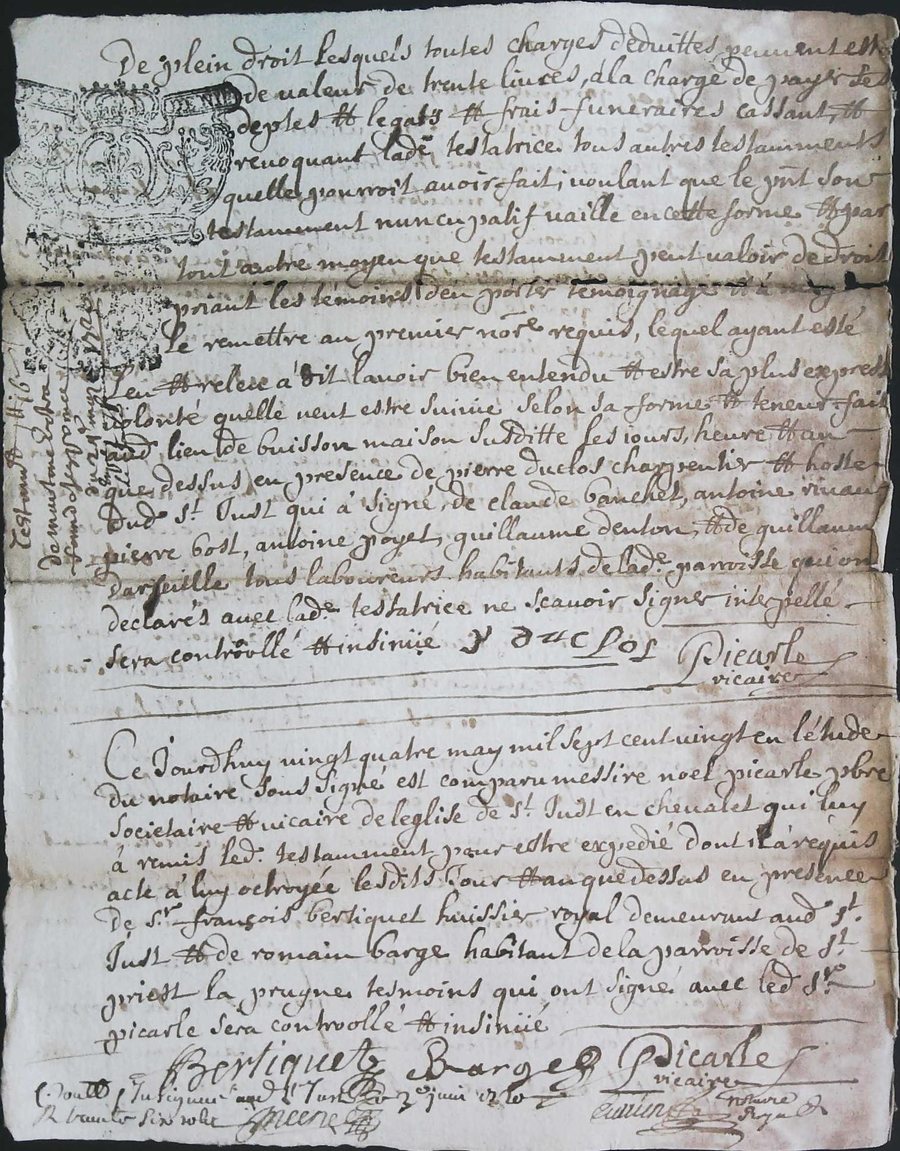 De plein droit lesquels toutes charges deduittes peuvent estre
de valeur de trente livres, a la charge de payer ses
deptes et legats et frais funeraires cassant et
revoquant lade testatrice tous autres testamments
quelle pourroit avoir fait, voulant que le pnt son
testamment nuncupatif vaille en cette forme et par
tout autre moyen que testamment peut valoir de droit
priant les témoins den porter témoignage et à
le remettre au premier nore requis, lequel ayant esté
leu et releu à dit lavoir bien entendu et estre sa plus express
volonté quelle veut estre suivie selon sa forme et teneur fait
aud lieu de buisson maison susditte ses jours, heure et an
que dessus en presence de pierre duclos charpentier et hoste
dud st. Just qui à signé, de claude banchet, antoine
pierre bost, antoine poyet, guillaume denton, et de guillaum
darfeuille tous laboureurs habitants de lade parroisse qui on
declarés avec lade testatrice ne scavoir signer interpellé
sera controllé et insinüé P duclos Picarle
vicaire
Ce Jourdhuy vingt quatre may mil sept cent vingt en l'étude
du notaire sous signé est comparu messire noel picarle pbre
societaire et vicaire de leglise de st. Just en chevalet qui luy
à remis led. testamment pour estre expedié dont il à requis
acte à luy octroyée lesdits Jour et an que dessus en presence
de sr françois bertiquet huissier royal demeurant aud st.
Just et de romain barge habitant de la parroisse de st
priest la prugne tesmoins qui ont signé avec led sr
picarle sera controollé et insinüé
Bertiquet Barge Picarle
vicaire
notaire
Royal